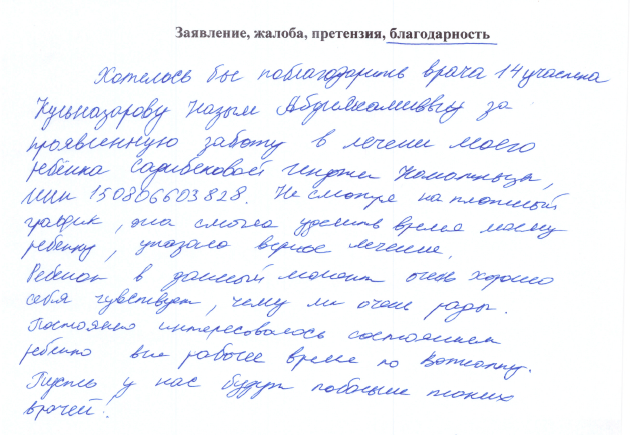 Заявление, жалоба, претензия, благодарность
Хотелось бы поблагодарить врача 14 участка
Кульназарову Назым Абдикамитовну за
проявленную заботу в лечении моего
ребёнка Садибековой
ИИН 150806603828. Не смотря на плотный
график, она смогла уделить время моему
ребенку, указала верное лечение.
Ребенок в данный момент очень хорошо
себя чувствует, чему мы очень рады.
Постоянно интересовалась состоянием
ребенка вне рабочее время по Ватсаппу.
Пусть у нас будут побольше таких
врачей!